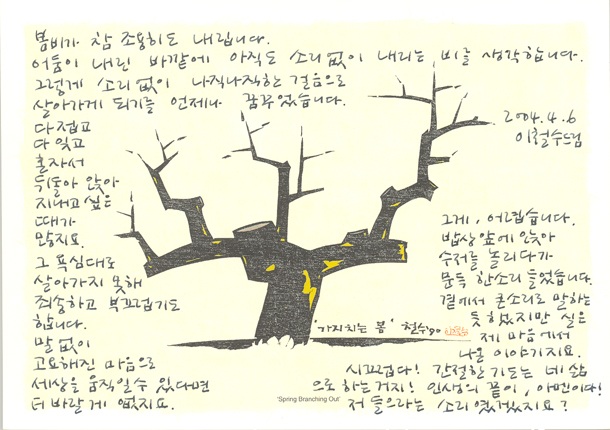 봄비가 참 조용히도 내립니다.
어둠이 내린 바깥에 아직도 소리없이 내리는 비를 생각합니다.
그렇게 소리없이 나직나직한 걸음으로
살아가게 되기를 언제나 꿈꾸었습니다.
다 접고
다 잊고
혼자서
뒤돌아 앉아
지내고 싶은
때가
많지요.
그 욕심대로
살아가지 못해
죄송하고 부끄럽기도
합니다.
말 없이
고요해진 마음으로
세상을 움직일 수 있다면
더 바랄 게 없지요.
2004. 4. 6
이철수드림
그게, 어렵습니다.
밥상 앞에 앉아
수저를 놀리다가
문득 한소리 들었습니다.
곁에서 큰소리로 말하는
듯 했었지만 실은
제 마음에서
나온 이야기지요.
시끄럽다! 간절한 기도는 네 삶
으로 하는거지! 인생의 끝이, 아멘이다!
저 들으라는 소리였겠지요?
'가지치는 봄' 철수 '90
'Spring Branching Out'